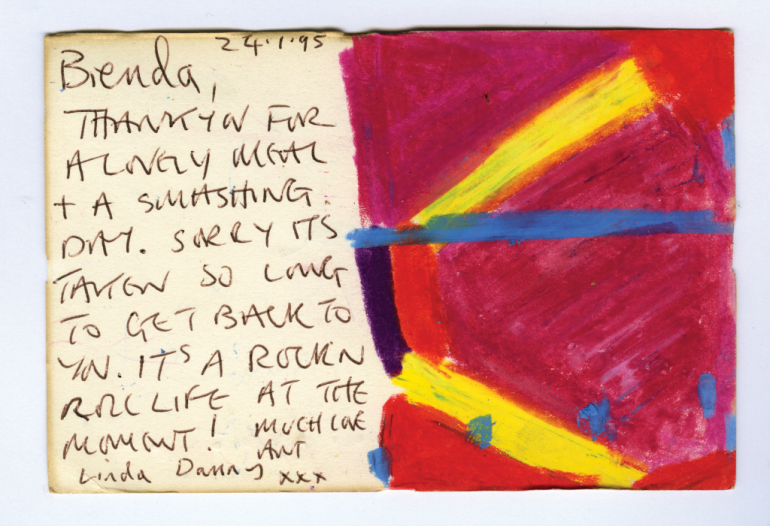 24.1.95
Brenda,
THANKYOU FOR
A LOVELY MEAL
+ A SMASHING
DAY. SORRY ITS
TAKEN SO LONG
TO GET BACK TO
YOU. ITS A ROCKN
ROLL LIFE AT THE
MOMENT! MUCH LOVE
ANT
Linda Danny xxx